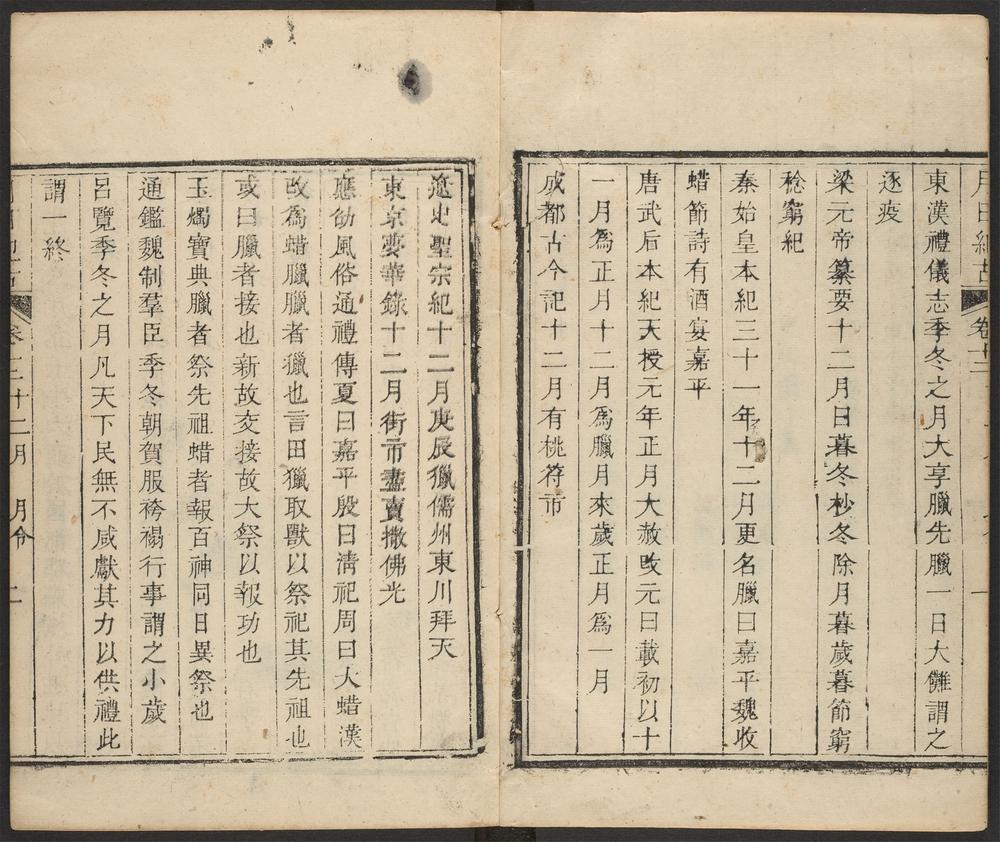 月日紀古 卷十二 一
東漢禮儀志季冬之月大享臘先臘一日大儺謂之
逐疫
梁元帝纂要十二月日暮冬杪冬除月暮歲暮節窮
稔窮紀
秦始皇本紀三十一年十二月更名臘曰嘉平魏收
蜡節詩有酒宴嘉平
唐武后本紀天授元年正月大赦改元曰載初以十
一月爲正月十二月爲臘月來歲正月爲一月
成都古今記十二月有桃符市
遼史聖宗紀十二月庚辰獵儒州東川拜天
東京夢華錄十二月街市盡賣撒佛光
應劭風俗通禮傳夏曰嘉平殷曰淸祀周曰大蜡漢
改爲蜡臘臘者獵也言田獵取獸以祭祀其先祖也
或曰臘者接也新故交接故大祭以報功也
玉燭寶典臘者祭先祖蜡者報百神同日異祭也
通鑑魏制羣臣季冬朝賀服袴褶行事謂之小歲
呂覽季冬之月凡天下民無不咸獻其力以供禮此
謂一終
卷十二 十二月 月令 二